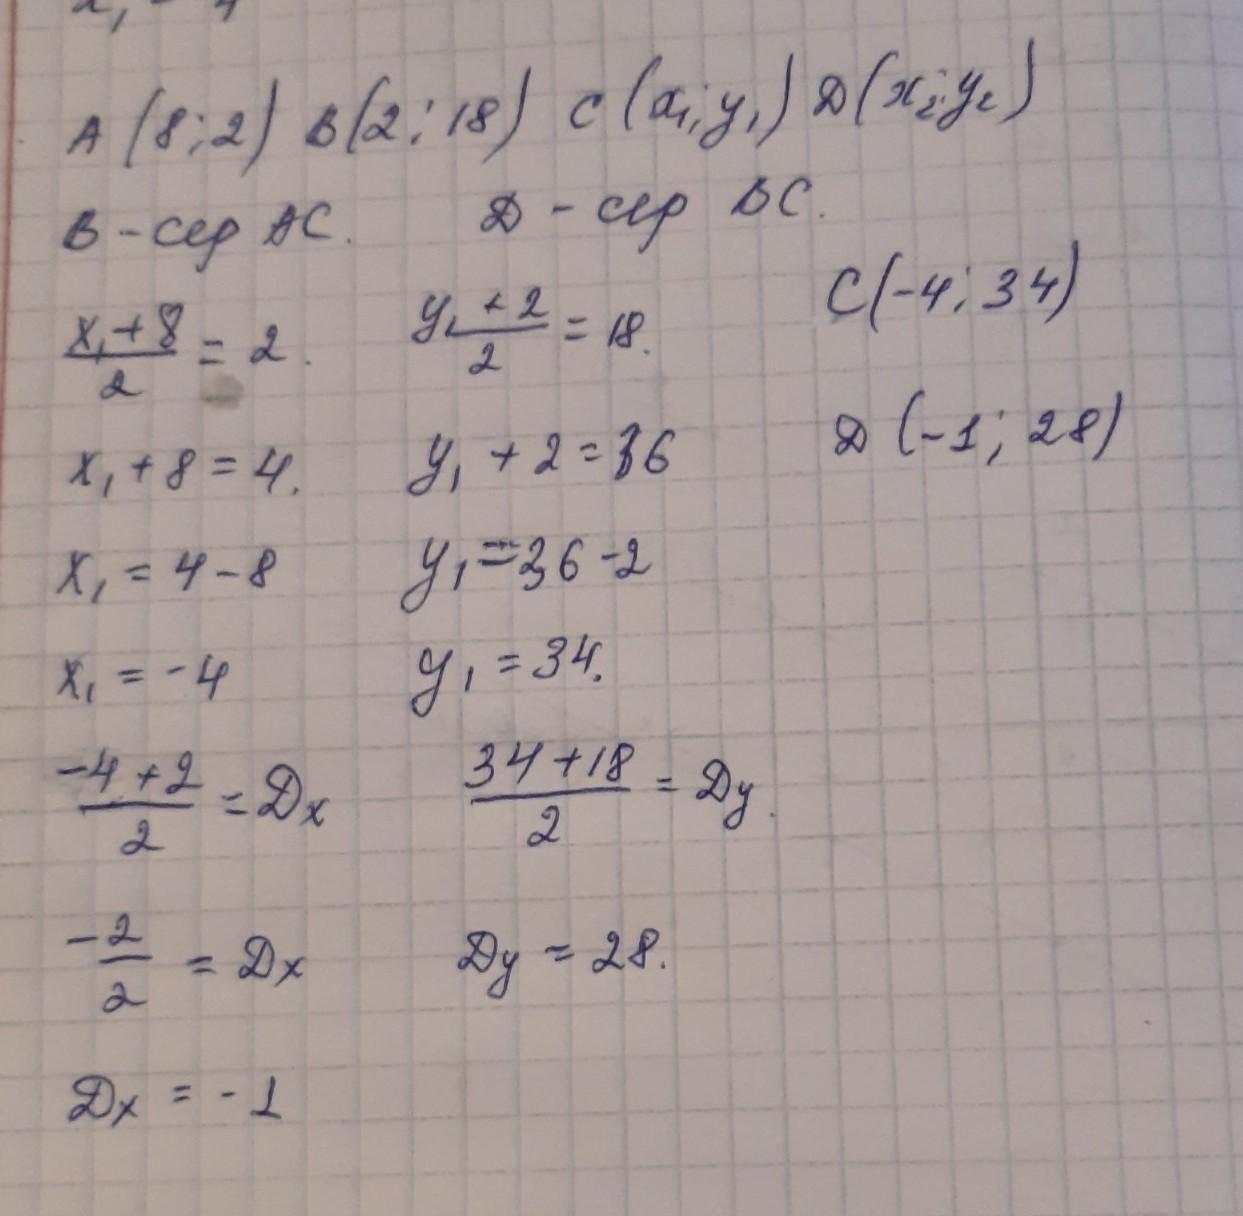 A (8; 2) B(2; 18) C (x₁; y₁) D(x₂; y₂)
B - сер AC. D - сер BC.
C(-4; 34)
(x₁ + 8)/2 = 2. (y₁ + 2)/2 = 18.
D (-1; 28)
x₁ + 8 = 4. y₁ + 2 = 36
x₁ = 4 - 8 y₁ = 36 - 2
x₁ = -4 y₁ = 34.
(-4 + 2)/2 = Dx (34 + 18)/2 = Dy.
-2/2 = Dx Dy = 28.
Dx = -1